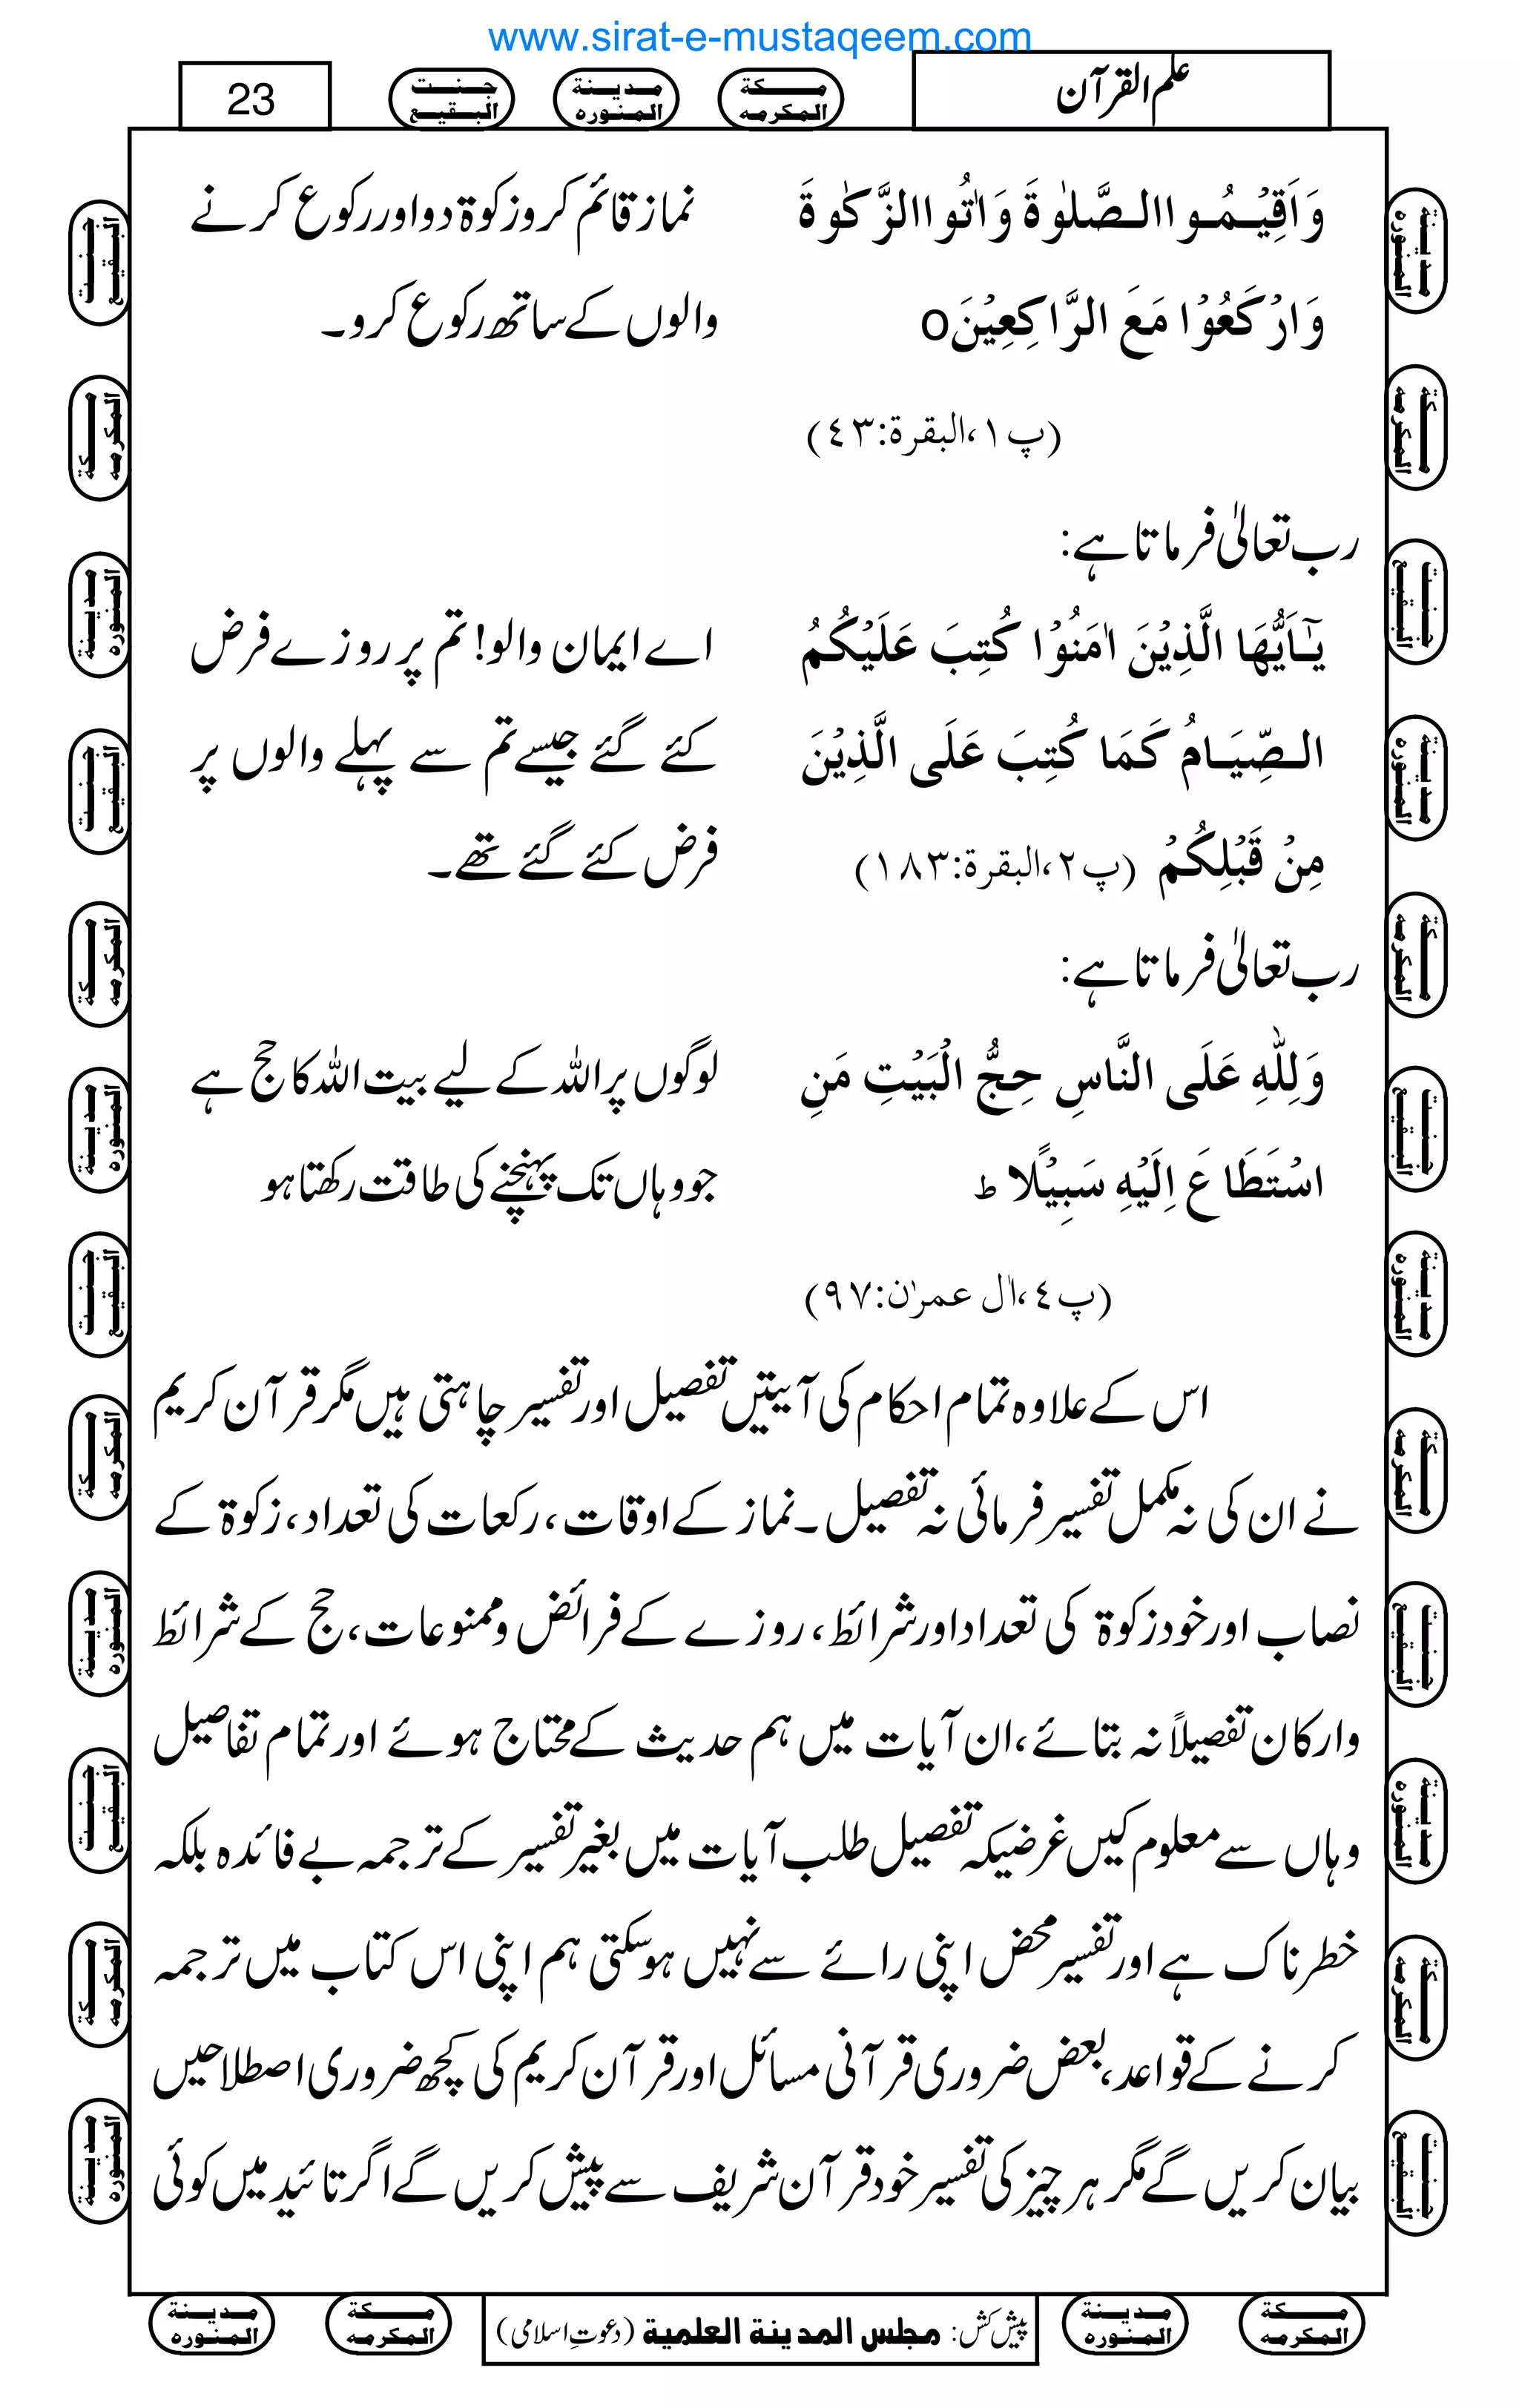 www.sirat-e-mustaqeem.com
علم القرآن
مكة المكرمه
مدينة المنوره
جنت البقيع
23
وَاَقِيْمُوا الصَّلٰوةَ وَاٰتُوا الزَّكٰوةَ
نماز قائم کرو زکوۃ دو اور رکوع کرنے
وَارْكَعُوْا مَعَ الرَّاكِعِيْنَo
والوں کے ساتھ رکوع کرو۔
(پ١،البقرة:٤٣)
رب تعالٰی فرماتا ہے:
يٰٓاَيُّهَا الَّذِيْنَ اٰمَنُوْا كُتِبَ عَلَيْكُمُ
اے ایمان والو! تم پر روزے فرض
الصِّيَامُ كَمَا كُتِبَ عَلَى الَّذِيْنَ
کئے گئے جیسے تم سے پہلے والوں پر
مِنْ قَبْلِكُمْ (پ٢،البقرة:١٨٣)
فرض کئے گئے تھے۔
رب تعالٰی فرماتا ہے:
وَلِلّٰهِ عَلَى النَّاسِ حِجُّ الْبَيْتِ مَنِ
لوگوں پر اللہ کے لیے بیت اللہ کا حج ہے
اسْتَطَاعَ اِلَيْهِ سَبِيْلًا ط
جو وہاں تک پہنچنے کی طاقت رکھتا ہو
(پ٤،اٰل عمرٰن:٩٧)
اس کے علاوہ تمام احکام کی آیتیں تفصیل اور تفسیر چاہتی ہیں مگر قرآن کریم
نے ان کی نہ مکمل تفسیر فرمائی نہ تفصیل۔ نماز کے اوقات، رکعات کی تعداد، زکوۃ کے
نصاب اور خود زکوۃ کی تعداد اور شرائط، روزے کے فرائض وممنوعات، حج کے شرائط
وارکان تفصیلاً نہ بتائے، ان آیات میں ہم حدیث کے محتاج ہوئے اور تمام تفاصیل
وہاں سے معلوم کیں غرضیکہ تفصیل طلب آیات میں بغیر تفسیر کے ترجمہ بے فائدہ بلکہ
خطرناک ہے اور تفسیر محض اپنی رائے سے نہیں ہوسکتی ہم اپنی اس کتاب میں ترجمہ
کرنے کے قواعد، بعض ضروری قرآنی مسائل اور قرآن کریم کی کچھ ضروری اصطلاحیں
بیان کریں گے مگر ہر چیز کی تفسیر خود قرآن شریف سے پیش کریں گے اگر تائید میں کوئی
مكة المكرمه
مدينة المنوره
پیش کش: مجلس المدينة العلمية (دعوتِ اسلامی)
مكة المكرمه
مدينة المنوره